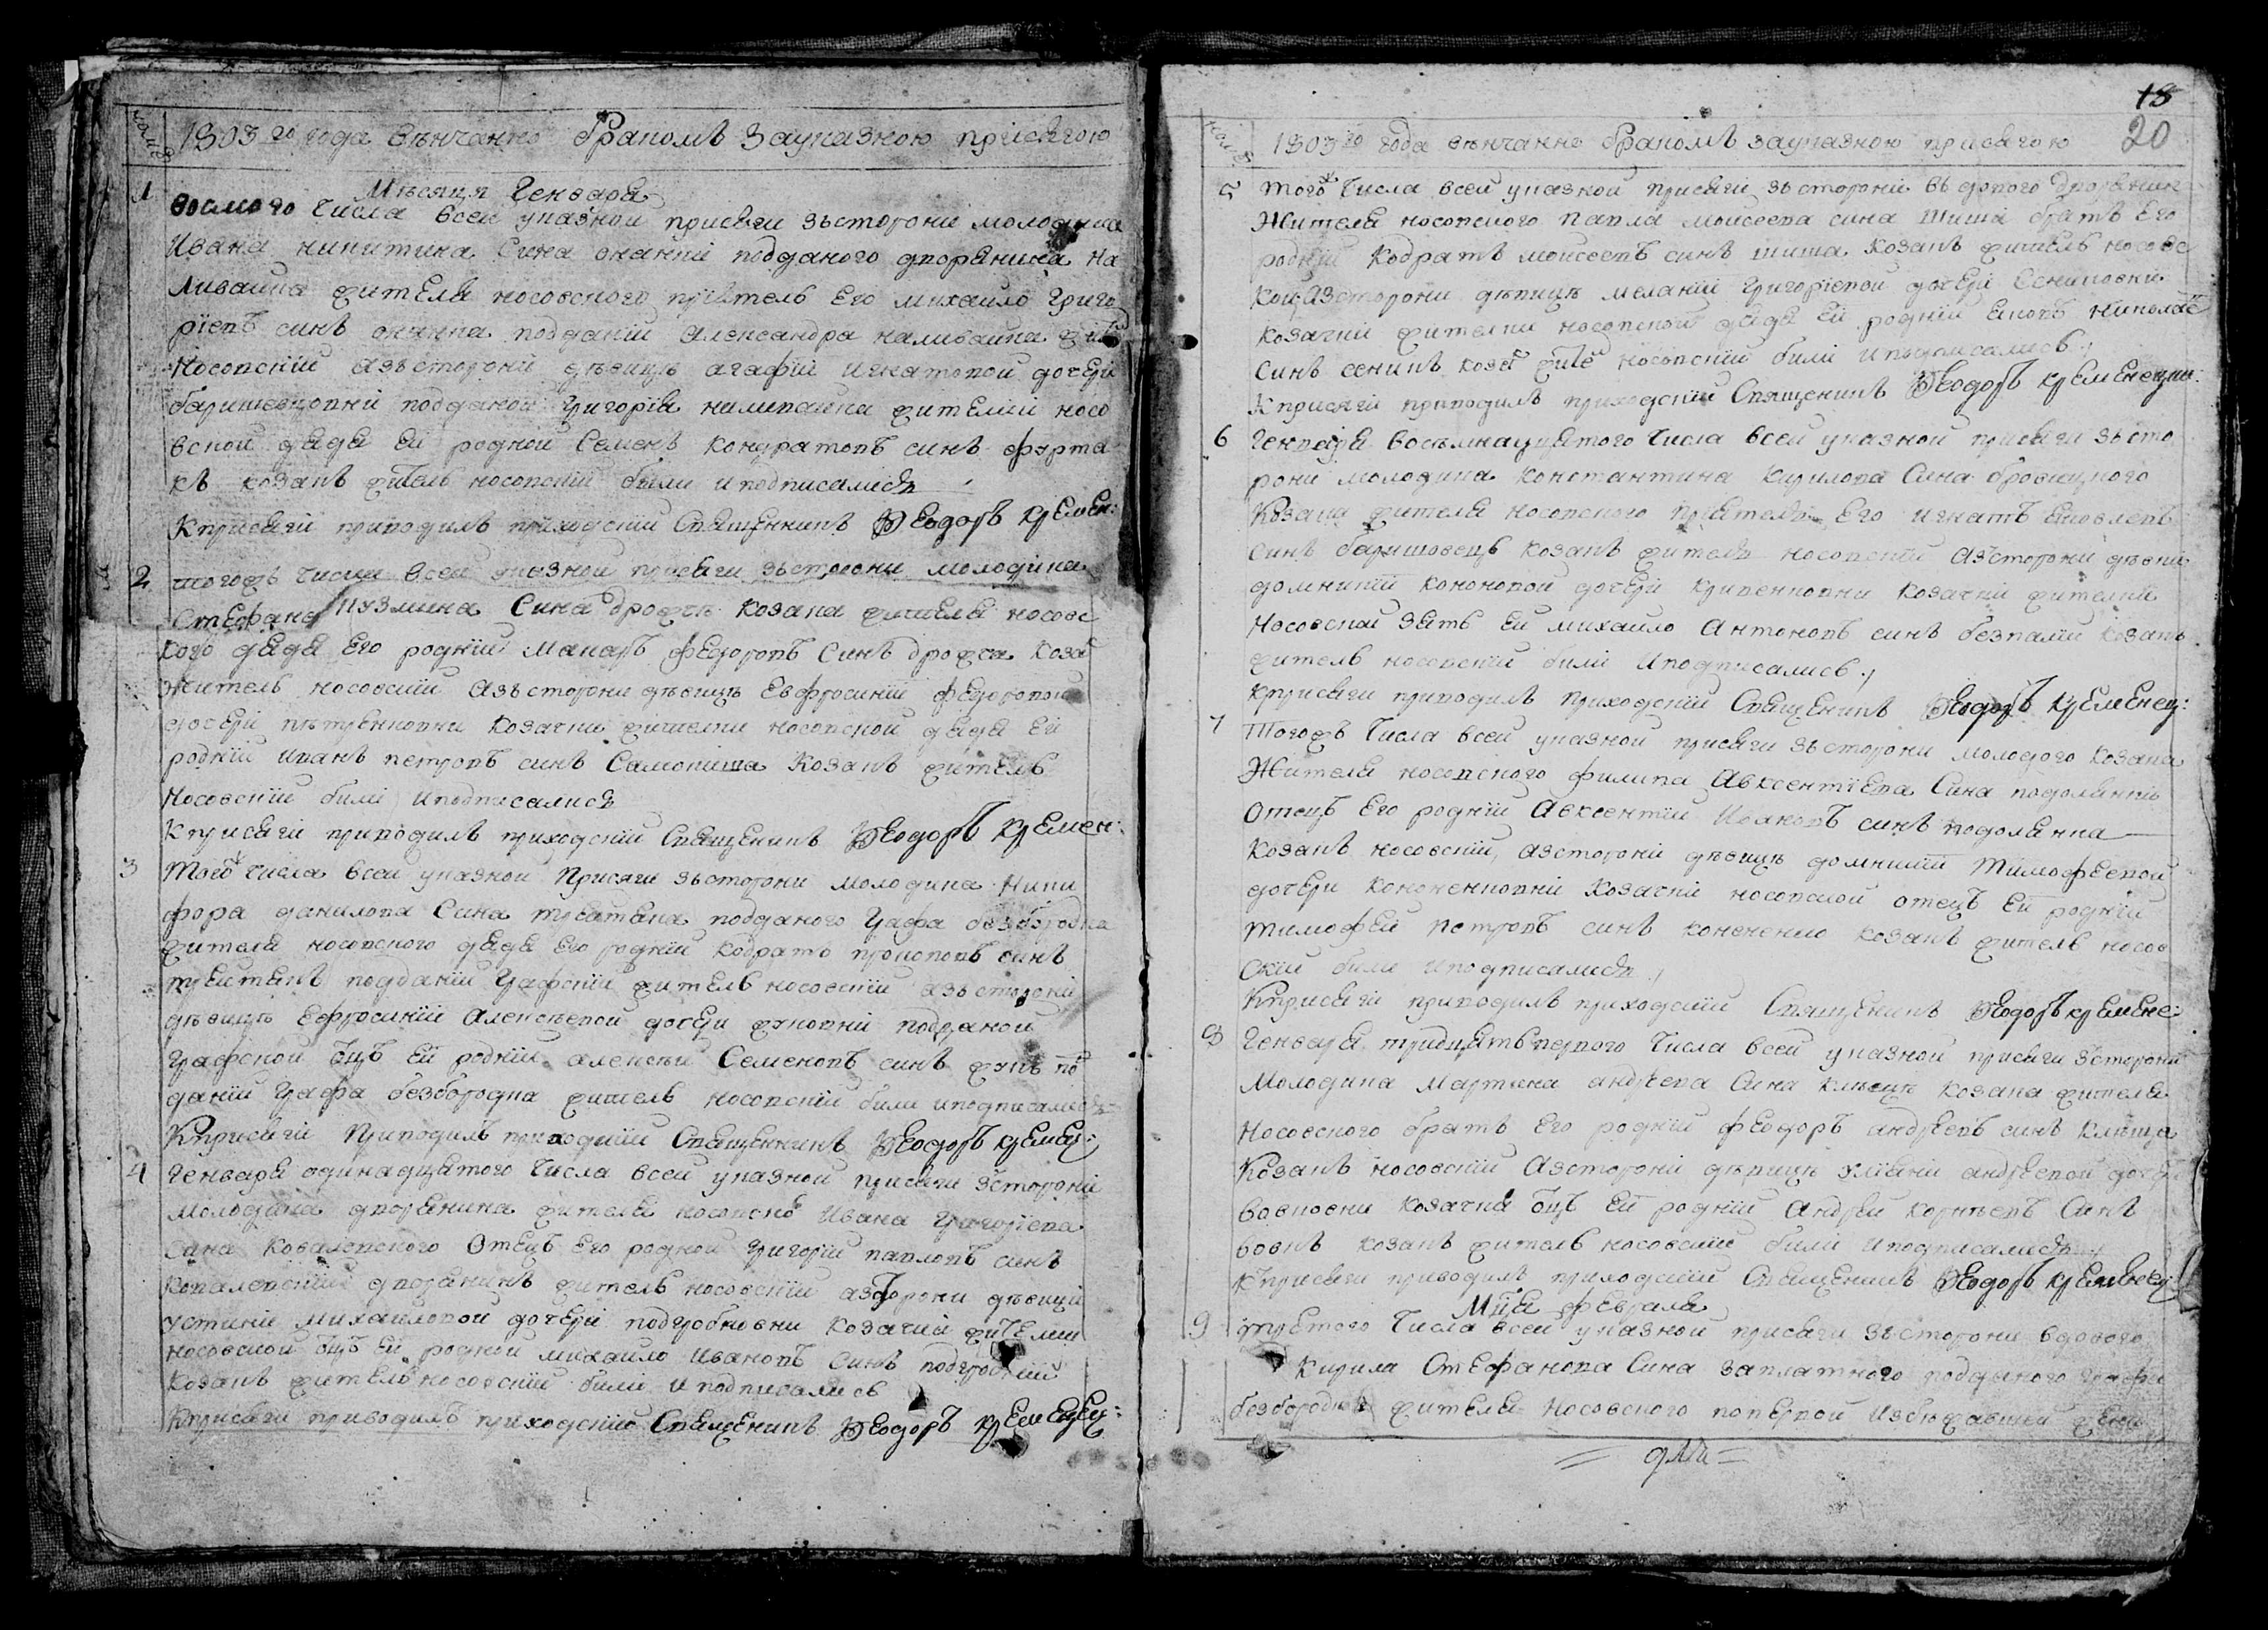 число
1803го года вѣнчанно бракомъ зауказною присягою
Мѣсяця Генваря
1 восмого числа всей указной присяги зьстороні молодика
Ивана никитина сина оканній подданого дворянина На
ливайка жителя носовского пріятель Его михайло григо
ріевъ синъ подданій александра наливайка жител
Носовскій азьстороні дѣвицѣ агафіи игнатовой дочери
баришевцовни подданой григорія наливайка жителки носо
вской дядя ей родній Семенъ кондратовъ синъ фурта
къ козакъ житель носовскій били иподписалися
Кприсягі приводилъ приходскій Священникъ Ѳеодоръ кремен:
2 тогожъ числа всей указной присяги зьстороні молодика
Стефана кузмина Сина дрожчи козака жителя носовс
кого дядя его родній Макаръ федоровъ Синъ дрожча коза
Житель носовскій азьстороні дѣвицѣ Евфросиніи федоровой
дочери пѣтренковни козачки жителки носовской дядя Ей
родній иванъ петровъ синъ Самокиша козакъ житель
Носовскій били иподписалися
Кприсягі приводилъ приходскій Священникъ Ѳеодоръ кремен:
3 Того числа всей указной Присяги зьстороні молодика Ники
фора данилова Сина подданого Графа безбородка
жителя носовского дядя Его родній кодратъ прокоповъ синъ
подданій Графскій житель носовскій азьстороні
дѣвицѣ Ефросиніи Алексѣевой дочери жуковні подданой
Графской оцъ Ей родній алексѣй Семеновъ синъ жукъ по
даній Графа безбородка житель носовскій били иподписалися
Кприсягі Приводилъ приходскій Священникъ Ѳеодоръ кремен:
4 Генваря одинадцятого числа всей указной присяги зстороні
молодика дворянина жителя носовско Ивана Григоріева
Сина Ковалевского Отецъ Его родной григорій павловъ синъ
ковалевскій дворянинъ житель носовскій азстороні дѣвиці
устиніи михайловой дочери подгробковни козачки жителки
носовской оцъ Ей родной михайло ивановъ синъ
козакъ житель носовскій били и подписались
Кприсяги приводилъ приходскій Священникъ Ѳеодоръ кременец:
18
20
число
1803го года вѣнчанно бракомъ зауказною присягою
5 того числа всей указной присягі зьстороні вдового дворянина
Жителя носовского павла моисеева сина шиша братъ Его
родній кодратъ моисеевъ синъ шиша козакъ житель носовс
кій азстороні дѣвицѣ меланіи григоріевой дочери
козачки жителки носовской дядя Ей родній яковъ николае
синъ козак жите носовскій били иподписались
Кприсягі приводилъ приходскій Священикъ Ѳеодоръ кременецки:
6 Генваря восѣмнацятого числа всей указной присяги зьсто
рони молодика константина кирилова Сина бровицкого
Козака жителя носовского пріятель Его игнатъ яковлевъ
синъ баришовецъ козакъ житель носовскій азстороні дѣвиці
домникіи кононовой дочери кривенковни козачкі жителки
Носовской зять Ей михайло антоновъ синъ безпалій козакъ
житель носовскій били иподписались
Кприсяги приводилъ приходскій Священикъ Ѳеодоръ кременец:
7 Тогожъ числа всей указной присяги зьстороні молодого козака
Жителя носовского филипа Авксентіева Сина подолянки
Отецъ Его родній Авксентій Ивановъ синъ подолянка
Козакъ носовскій азстороні дѣвицѣ домникіи Тимофеевой
дочери кононенковні козачкі носовской отецъ Ей родній
тимофей петровъ синъ козакъ житель носов
скій били иподписалися
Кприсягі приводилъ приходскій Священикъ Ѳеодоръ кремене:
8 Генваря тридцятьпервого числа всей указной присяги зстороні
Молодика Мартина андреева Сина клѣщѣ козака жителя
Носовского братъ Его родній феодоръ андреевъ синъ клѣща
Козакъ носовскій азстороні дѣвицѣ андреевой дочери
вовковни козачки оцъ Ей родній Андрей корнѣевъ Синъ
вовкъ козакъ житель носовскій били иподписались
Кприсяги приводилъ приходскій Священикъ Ѳеодоръ кременец:
Мца февраля
9 третого числа всей указной присяги зьстороні вдового
Кирила Стефанова Сина заплатного подданого графа
безбородки жителя Носовского попервой жени